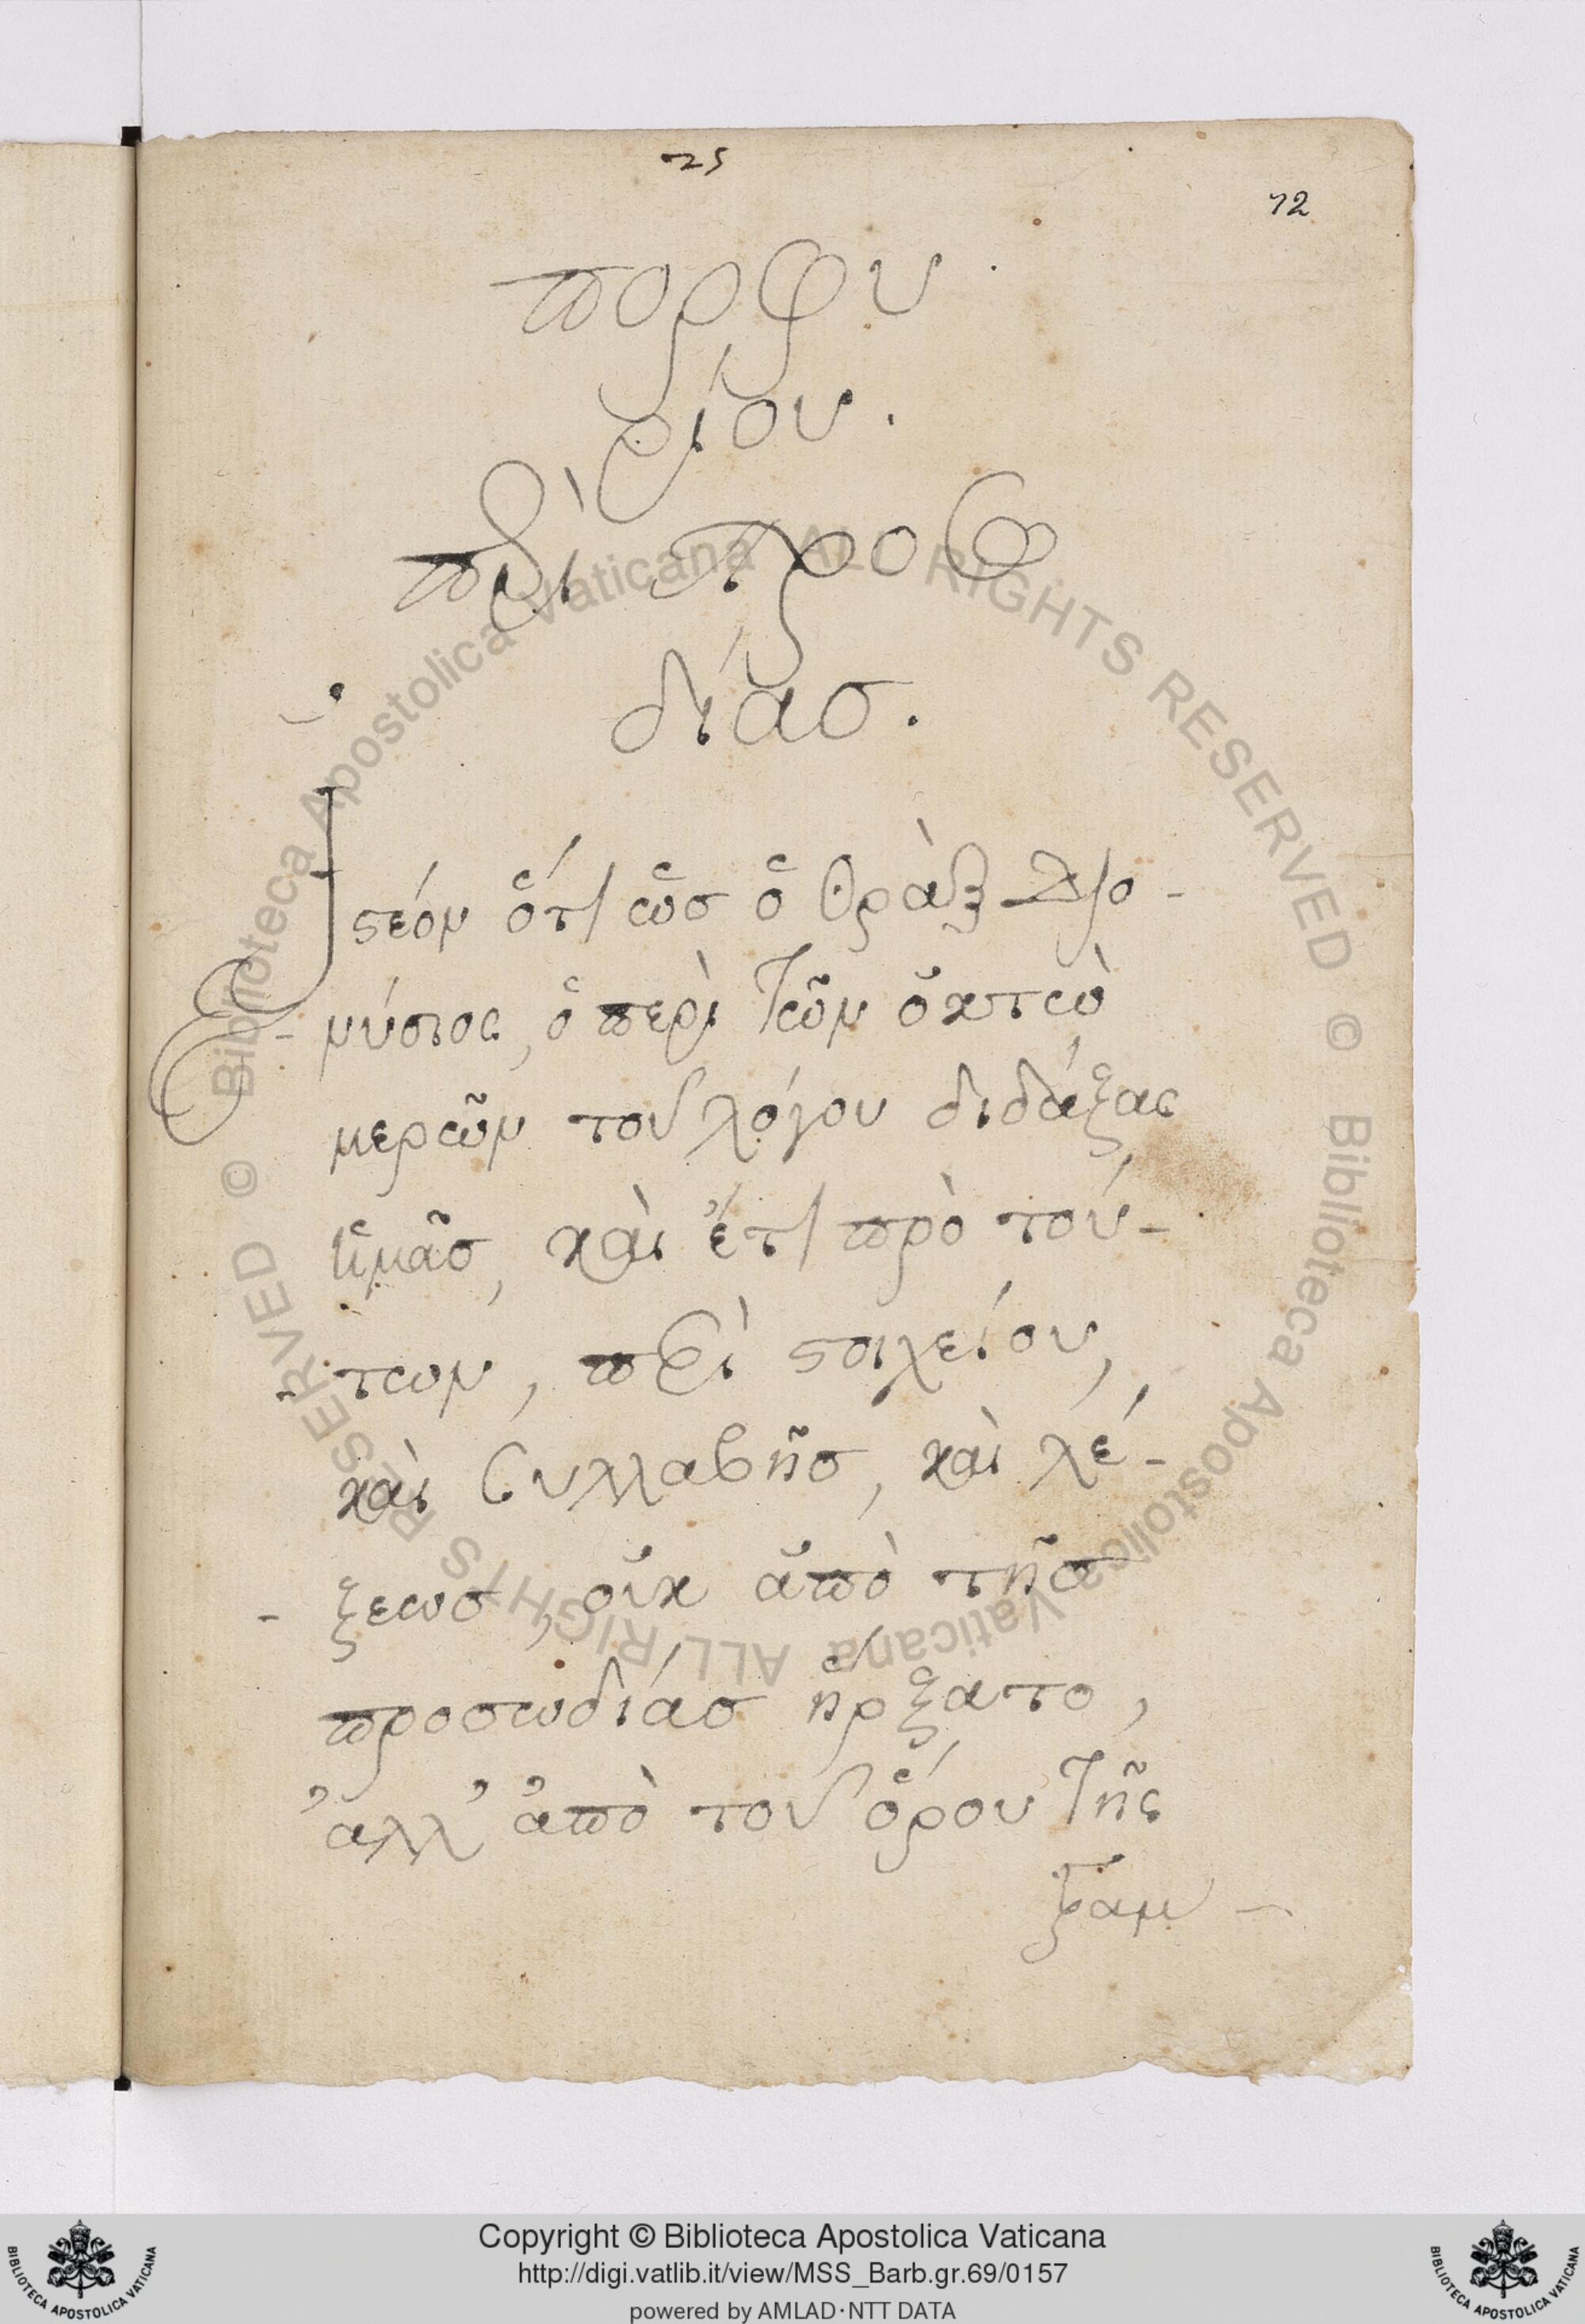 25
72
πορφυ
ρίου.
περὶ προσω
δίασ.
Ἰστέον ὅτι ὡσ ὁ θρὰξ Διο-
-νύσιος, ὁ περὶ τῶν ὀκτὼ
μερῶν τοῦ λόγου διδάξας
ἡμᾶσ, καὶ ἔτι πρὸ τού-
-των, περὶ στοιχείου,
καὶ συλλαβῆσ, καὶ λέ-
-ξεωσ, οὐκ ἀπὸ τῆσ
προσωδίασ ἤρξατο,
ἀλλ' ἀπὸ τοῦ ὅρου τῆς
Copyright © Biblioteca Apostolica Vaticana
http://digi.vatlib.it/view/MSS_Barb.gr.69/0157
powered by AMLAD·NTT DATA
BIBLIOTECA APOSTOLICA VATICANA
BIBLIOTECA APOSTOLICA VATICANA
© Biblioteca Apostolica Vaticana ALL RIGHTS RESERVED
© Biblioteca Apostolica Vaticana ALL RIGHTS RESERVED